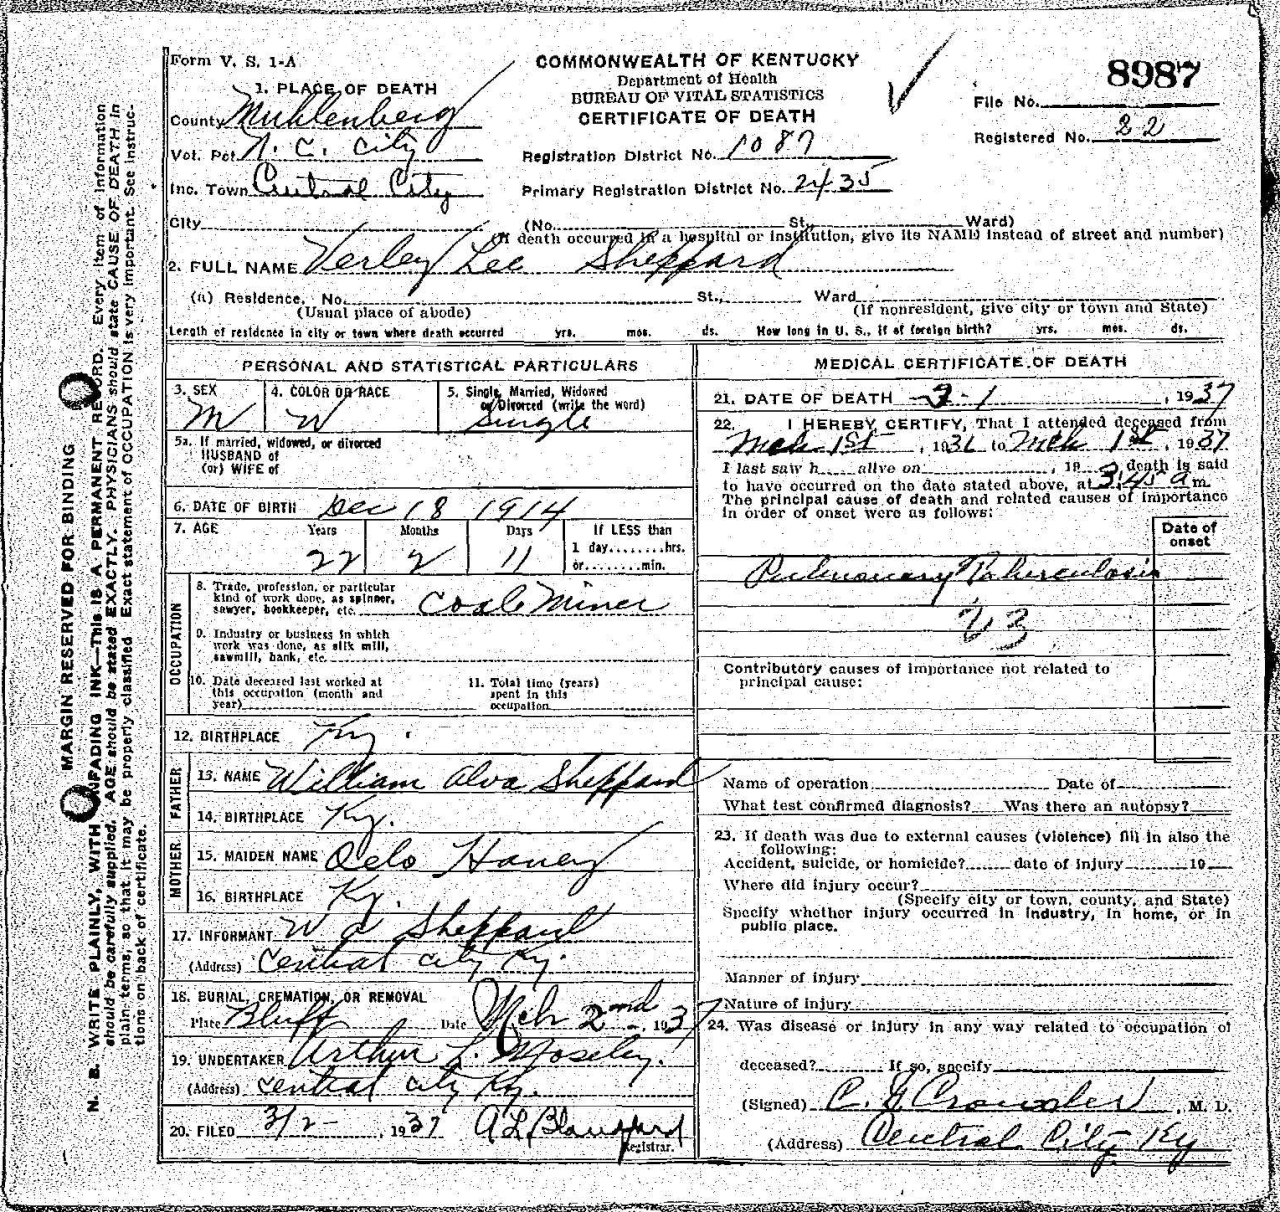 Form V. S. 1-A
COMMONWEALTH OF KENTUCKY
Department of Health
BUREAU OF VITAL STATISTICS
CERTIFICATE OF DEATH
8987
File No.
Registered No. 22
1. PLACE OF DEATH
County Muhlenberg
Vot. Pct. N. C. City
Inc. Town Central City
Registration District No. 1087
Primary Registration District No. 2435
City (No. St., Ward)
(If death occurred in a hospital or institution, give its NAME instead of street and number)
2. FULL NAME Verley Lee Sheppard
(a) Residence, No. St., Ward
(Usual place of abode) (If nonresident, give city or town and State)
Length of residence in city or town where death occurred yrs. mos. ds. How long in U. S., if of foreign birth? yrs. mos. ds.
PERSONAL AND STATISTICAL PARTICULARS
3. SEX M
4. COLOR OR RACE W
5. Single, Married, Widowed
or Divorced (write the word)
Single
5a. If married, widowed, or divorced
HUSBAND of
(or) WIFE of
6. DATE OF BIRTH Dec 18 1914
7. AGE Years Months Days If LESS than
22 2 11 1 day........hrs.
or........min.
OCCUPATION
8. Trade, profession, or particular
kind of work done, as spinner,
sawyer, bookkeeper, etc. Coal Miner
9. Industry or business in which
work was done, as silk mill,
sawmill, bank, etc.
10. Date deceased last worked at
this occupation (month and
year)
11. Total time (years)
spent in this
occupation
12. BIRTHPLACE Ky.
FATHER
13. NAME William Alva Sheppard
14. BIRTHPLACE Ky.
MOTHER
15. MAIDEN NAME Oelo Haney
16. BIRTHPLACE Ky.
17. INFORMANT W A Sheppard
(Address) Central City Ky.
18. BURIAL, CREMATION, OR REMOVAL
Place Bluff Date Mch 2nd, 1937
19. UNDERTAKER Arthur L. Moseley.
(Address) Central City Ky.
20. FILED 3/2-, 1937 A L Blandford
Registrar.
MEDICAL CERTIFICATE OF DEATH
21. DATE OF DEATH 3-1, 1937
22. I HEREBY CERTIFY, That I attended deceased from
Mch 1st, 1936 to Mch 1st, 1937
I last saw h alive on , 19 , death is said
to have occurred on the date stated above, at 3:45 a m.
The principal cause of death and related causes of importance
in order of onset were as follows:
Date of
onset
Pulmonary Tuberculosis
23
Contributory causes of importance not related to
principal cause:
Name of operation Date of
What test confirmed diagnosis? Was there an autopsy?
23. If death was due to external causes (violence) fill in also the
following:
Accident, suicide, or homicide? date of injury 19
Where did injury occur?
(Specify city or town, county, and State)
Specify whether injury occurred in industry, in home, or in
public place.
Manner of injury
Nature of injury
24. Was disease or injury in any way related to occupation of
deceased? If so, specify
(Signed) C. G. Crowder, M. D.
(Address) Central City Ky
MARGIN RESERVED FOR BINDING
N. B. WRITE PLAINLY, WITH UNFADING INK—THIS IS A PERMANENT RECORD. Every item of information
should be carefully supplied. AGE should be stated EXACTLY. PHYSICIANS should state CAUSE OF DEATH in
plain terms, so that it may be properly classified. Exact statement of OCCUPATION is very important. See instruc-
tions on back of certificate.